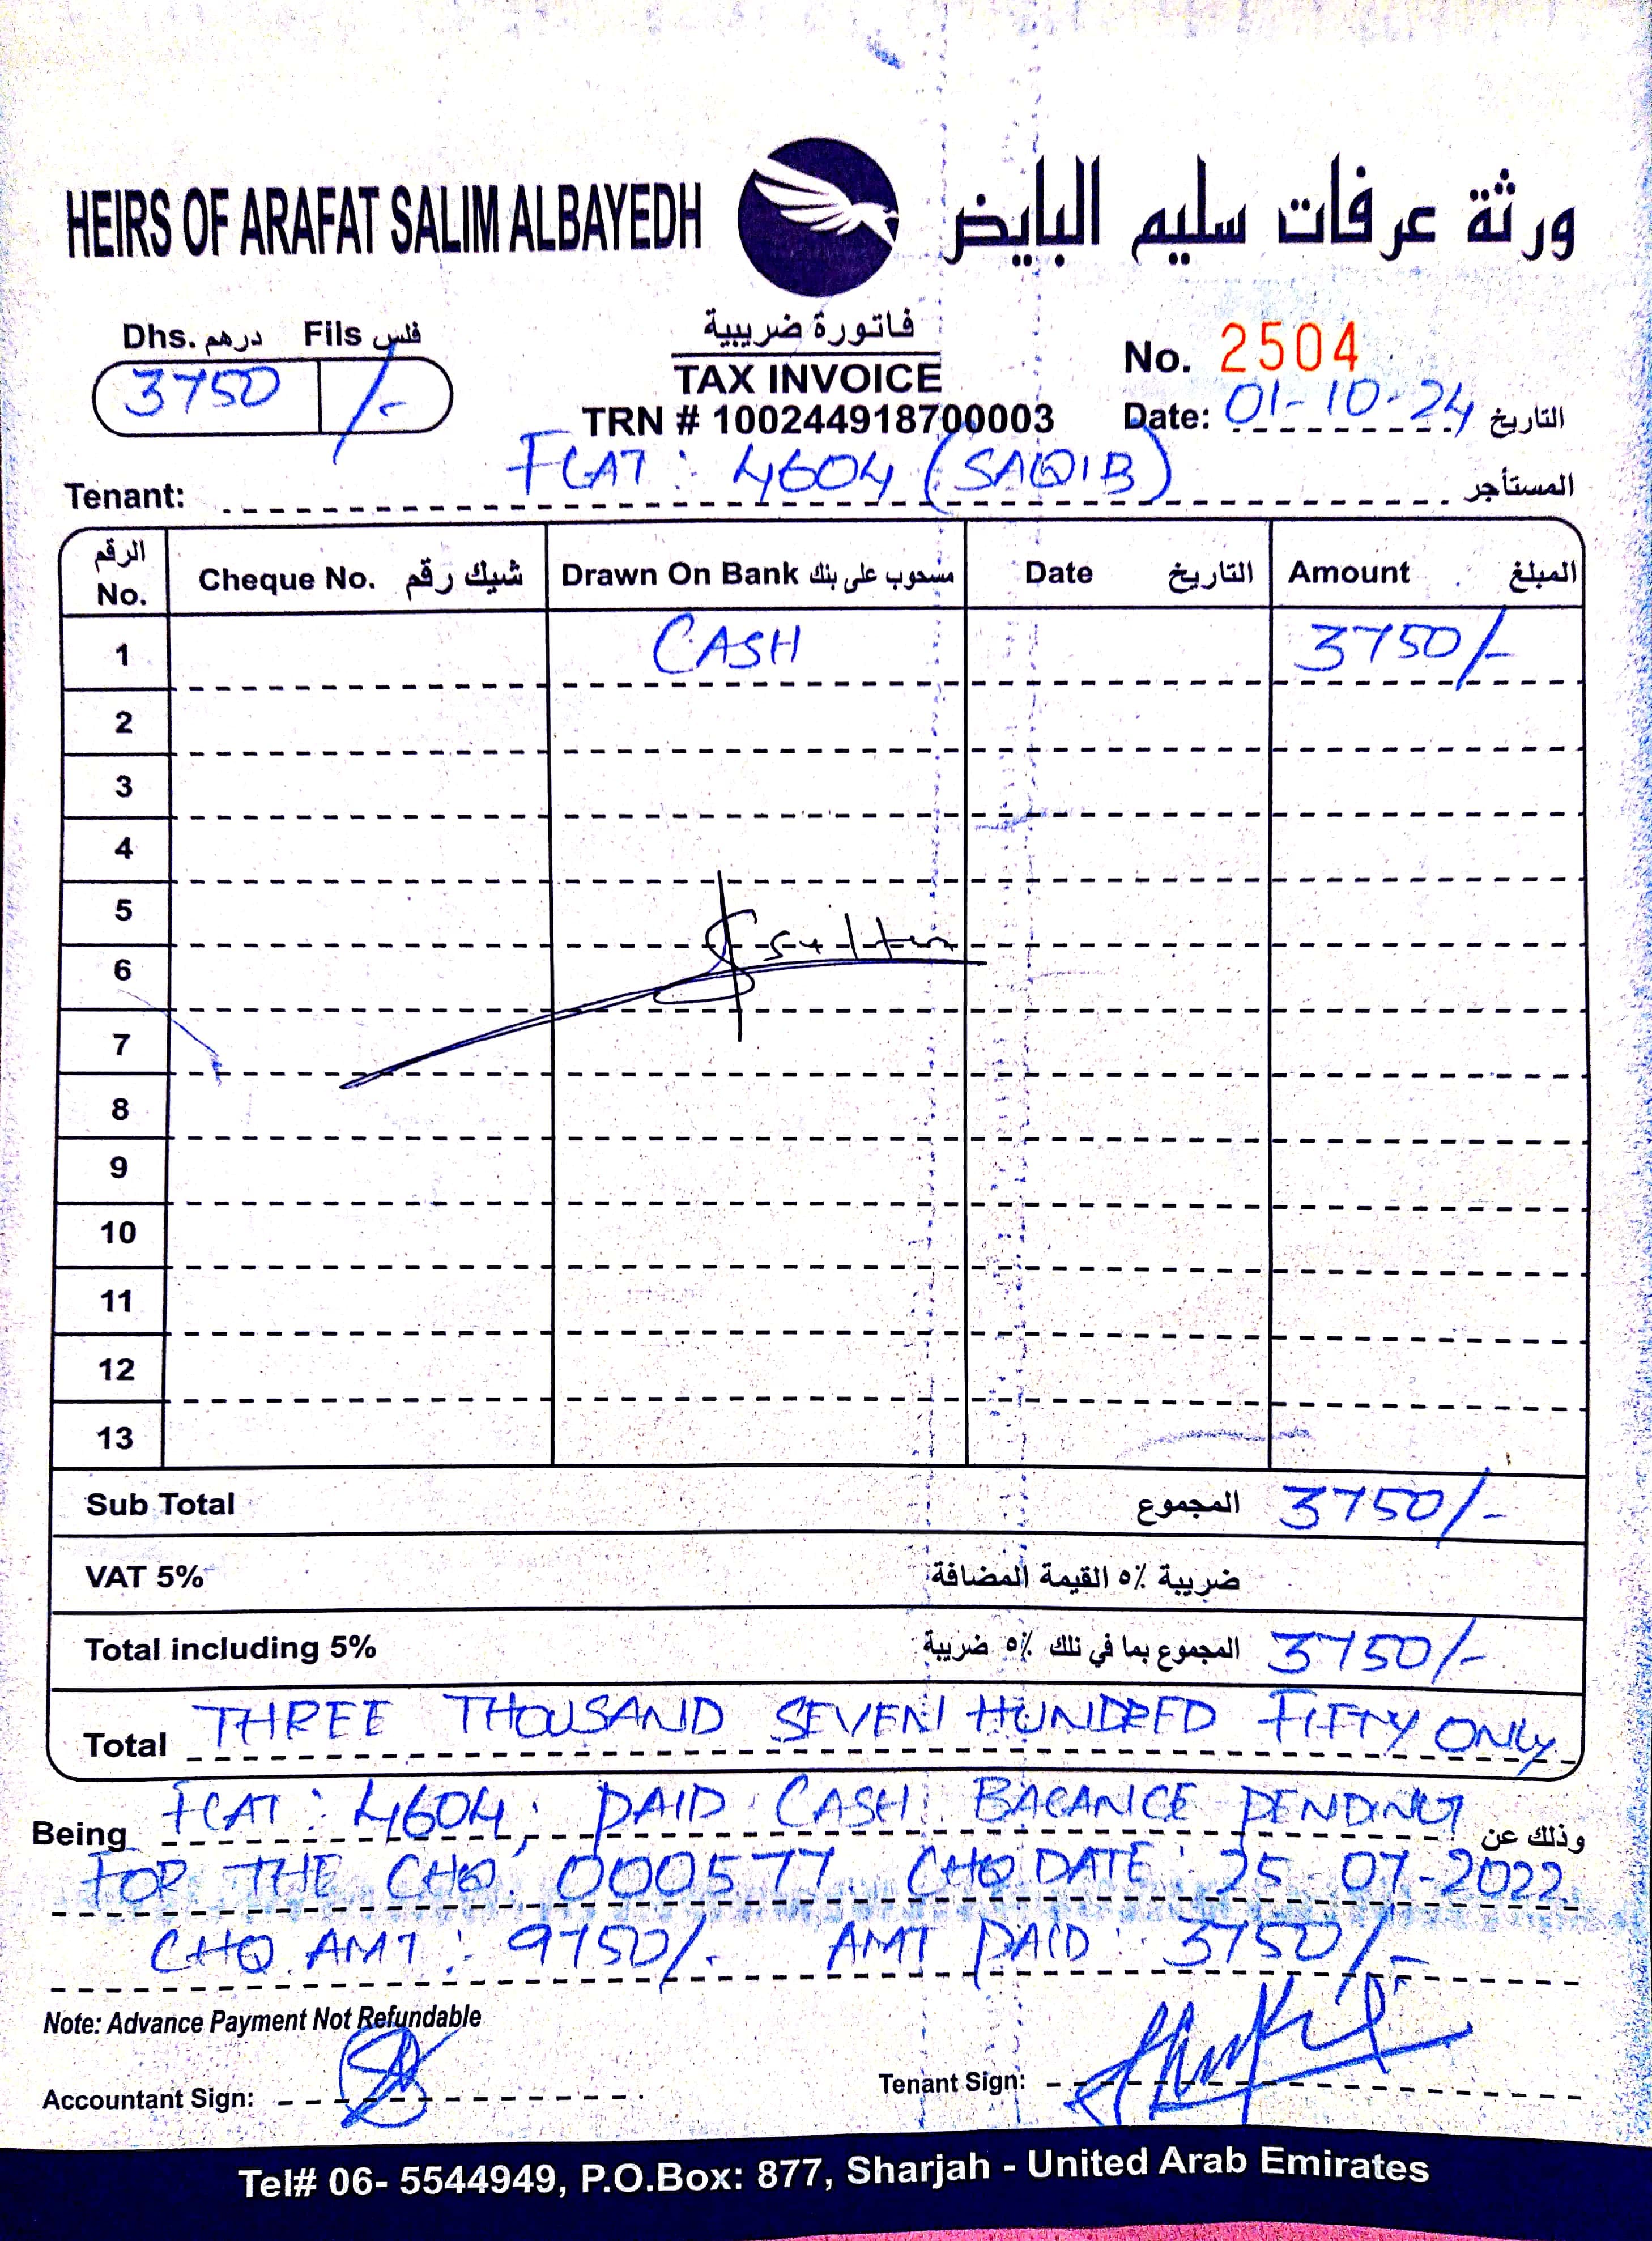 HEIRS OF ARAFAT SALIM ALBAYEDH ورثة عرفات سليم البايض
Dhs. درهم Fils فلس
3750 /-
فاتورة ضريبية
TAX INVOICE
TRN # 100244918700003
No. 2504
Date: 01-10-24 التاريخ
Tenant: FLAT: 4604 (SAQIB) المستأجر
الرقم No. Cheque No. شيك رقم Drawn On Bank مسحوب على بنك Date التاريخ Amount المبلغ
1 CASH 3750/-
2
3
4
5
6
7
8
9
10
11
12
13
Sub Total المجموع 3750/-
VAT 5% ضريبة ٥٪ القيمة المضافة
Total including 5% المجموع بما في ذلك ٥٪ ضريبة 3750/-
Total THREE THOUSAND SEVEN HUNDRED FIFTY ONLY
Being FLAT: 4604, PAID CASH BALANCE PENDING وذلك عن
FOR THE CHQ. 000577. CHQ DATE: 25-07-2022
CHQ AMT: 9750/- AMT PAID: 3750/-
Note: Advance Payment Not Refundable
Accountant Sign: Tenant Sign:
Tel# 06- 5544949, P.O.Box: 877, Sharjah - United Arab Emirates